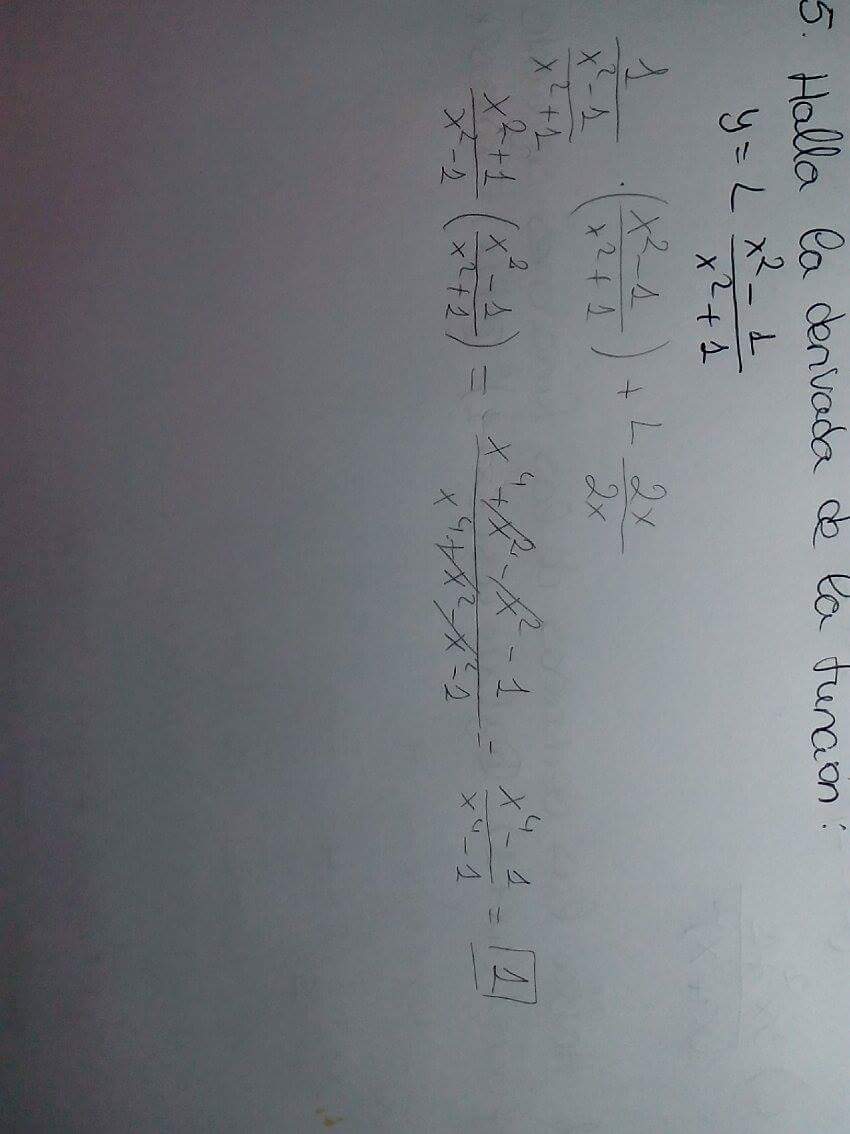 5. Halla la derivada de la función:
y = L (x² - 1)/(x² + 1)
1/((x² - 1)/(x² + 1)) · ((x² - 1)/(x² + 1)) + L 2x/2x
(x² + 1)/(x² - 1) ((x² - 1)/(x² + 1)) = (x⁴ + x² - x² - 1)/(x⁴ + x² - x² - 1) = (x⁴ - 1)/(x⁴ - 1) = 1